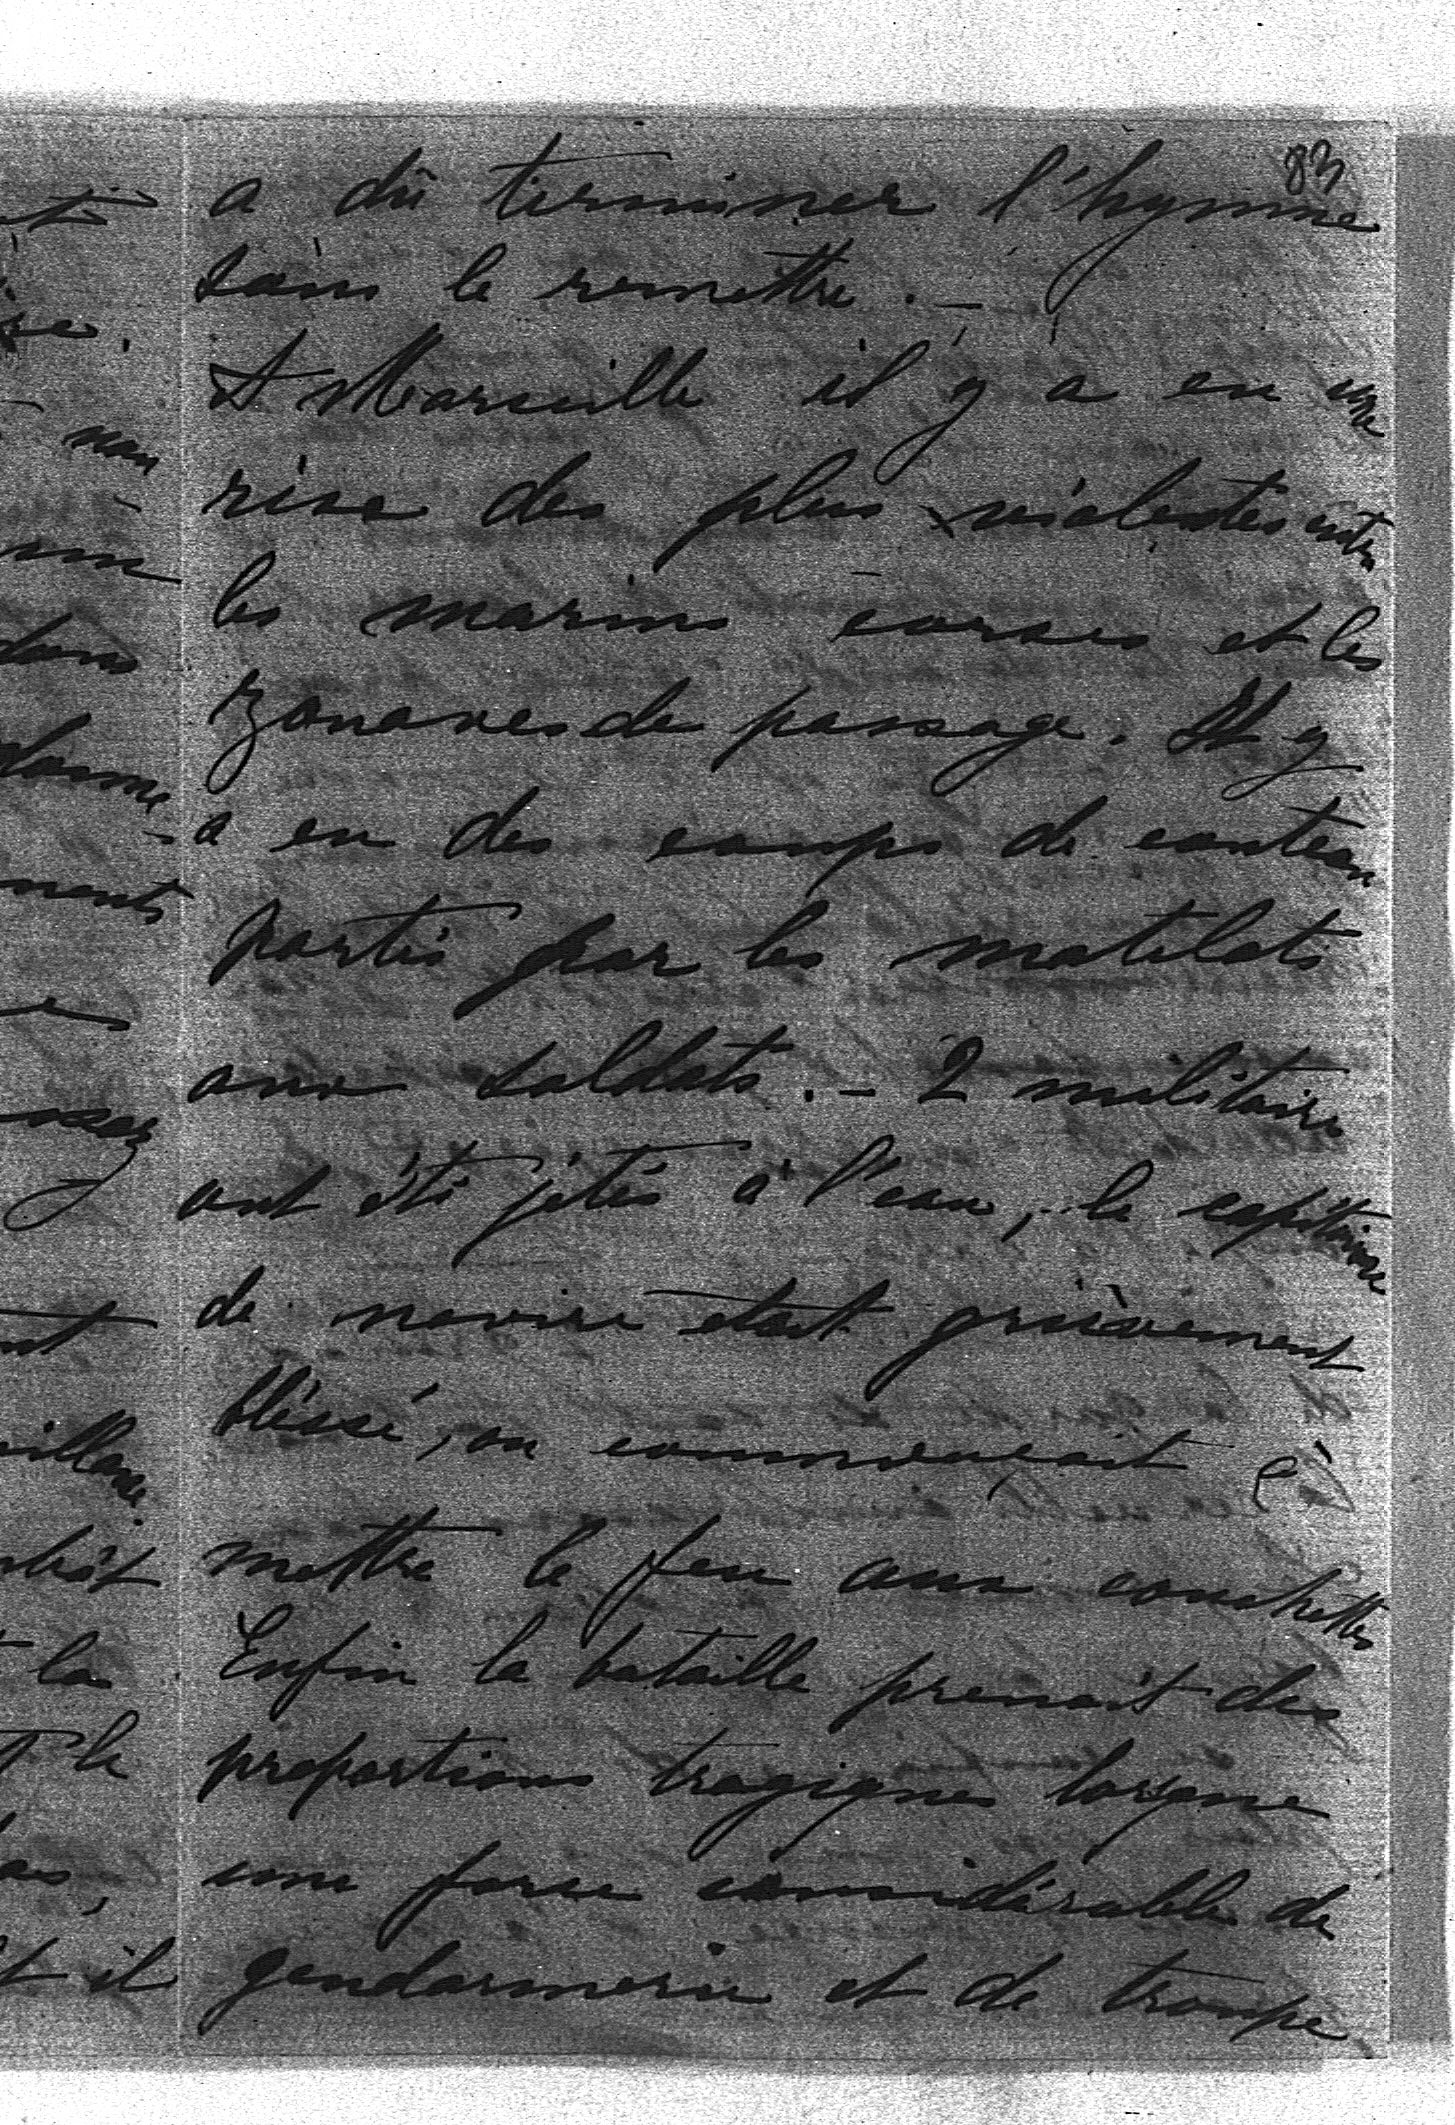 83
a dû terminer l'hymne
sans le remettre. —
A Marseille il y a eu une
rixe des plus violentes entre
les marins corses et les
zouaves de passage. Il y
a eu des coups de couteau
portés par les matelots
aux soldats. — 2 militaires
ont été jetés à l'eau, le capitaine
de navire était grièvement
blessé, on commençait à
mettre le feu aux couchettes
Enfin la bataille prenait des
proportions tragiques lorsque
une force considérable de
gendarmerie et de troupe